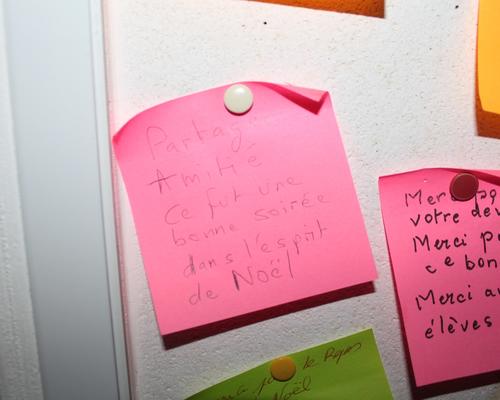 Partag
Amitié
Ce fut une
bonne soirée
dans l'esprit
de Noël
Mer
votre dév
Merci p
ce bon
Merci au
élèves
Repas
Noël